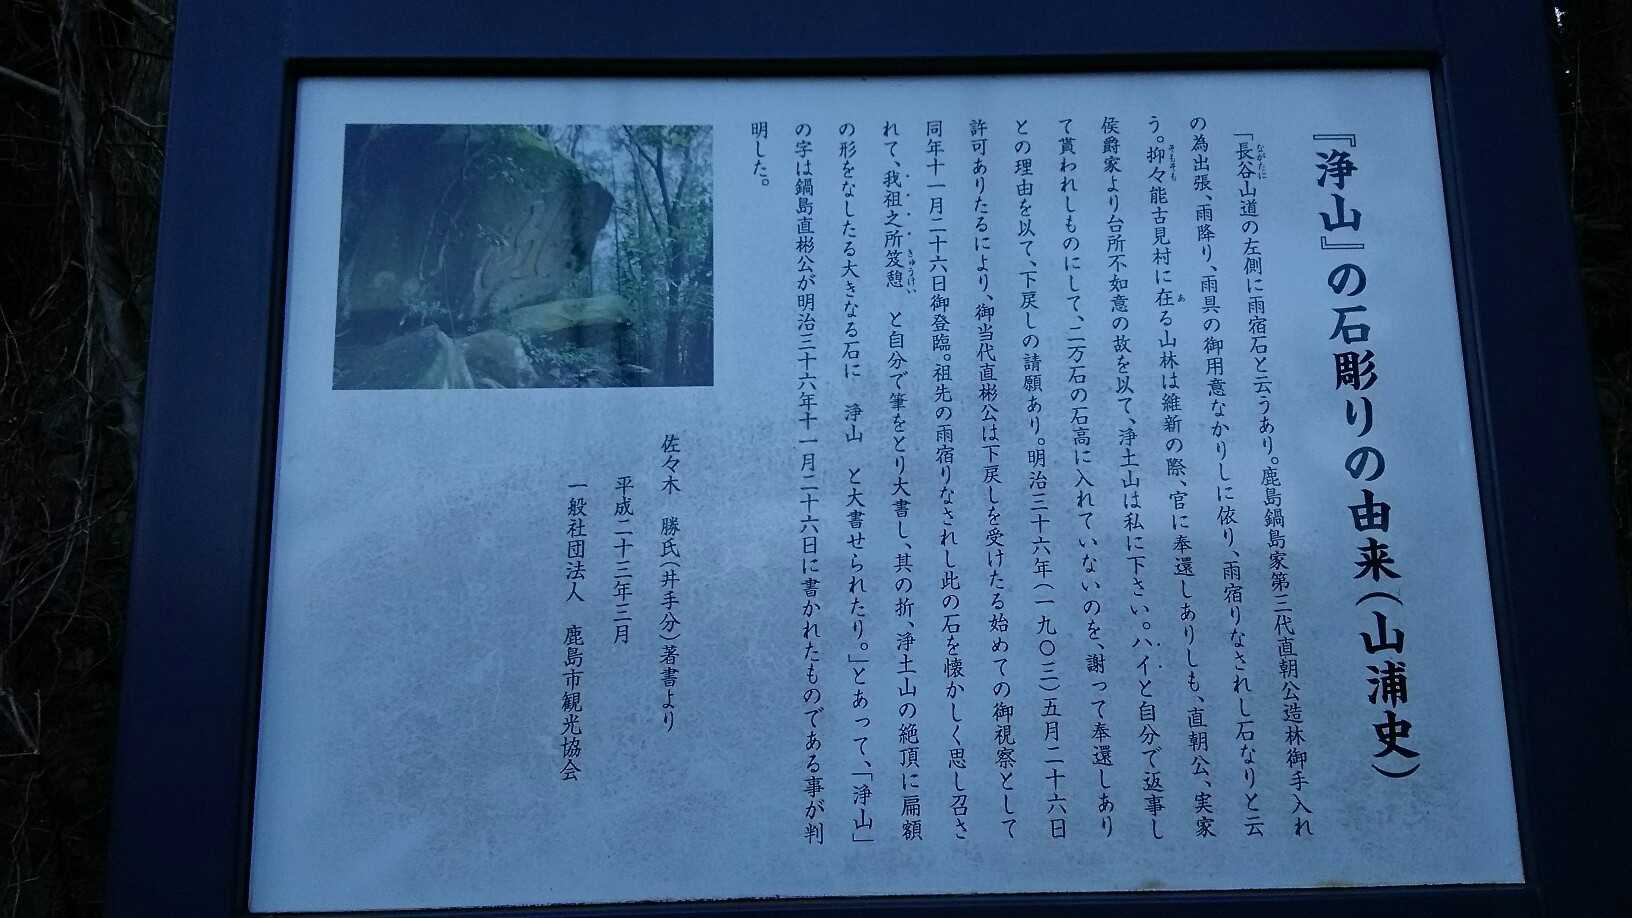 『浄山』の石彫りの由来（山浦史）
「長谷山道の左側に雨宿石と云うあり。鹿島鍋島家第三代直朝公造林御手入れ
の為出張、雨降り、雨具の御用意なかりしに依り、雨宿りなされし石なりと云
う。抑々能古見村に在る山林は維新の際、官に奉還しありしも、直朝公、実家
侯爵家より台所不如意の故を以て、浄土山は私に下さい。ハイと自分で返事し
て貰われしものにして、二万石の石高に入れていないのを、謝って奉還しあり
との理由を以て、下戻しの請願あり。明治三十六年（一九〇三）五月二十六日
許可ありたるにより、御当代直彬公は下戻しを受けたる始めての御視察として
同年十一月二十六日御登臨。祖先の雨宿りなされし此の石を懐かしく思し召さ
れて、我祖之所笈憩　と自分で筆をとり大書し、其の折、浄土山の絶頂に扁額
の形をなしたる大きなる石に　浄山　と大書せられたり。」とあって、「浄山」
の字は鍋島直彬公が明治三十六年十一月二十六日に書かれたものである事が判
明した。
佐々木　勝氏（井手分）著書より
平成二十三年三月
一般社団法人　鹿島市観光協会